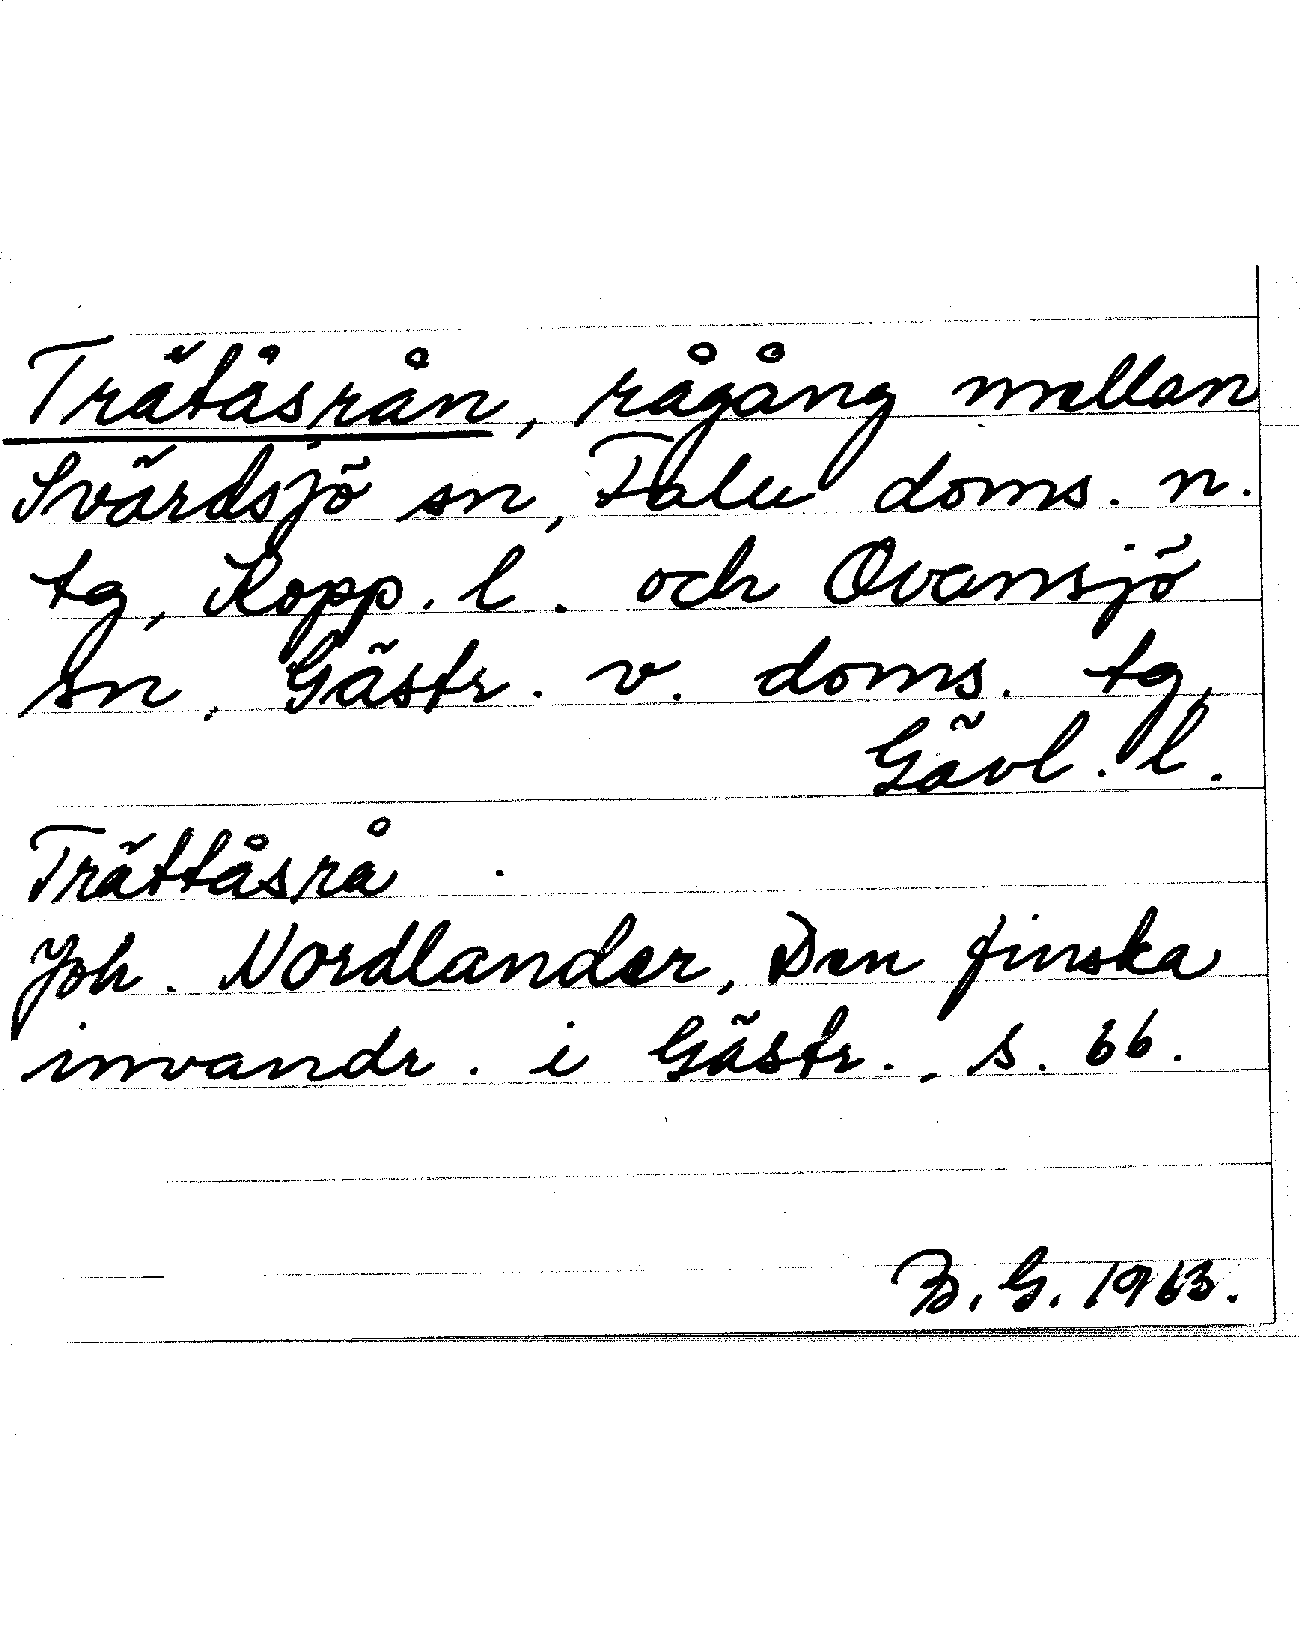 Trätåsrån, rågång mellan
Svärdsjö sn, Falu doms. n.
tg, Kopp. l. och Ovansjö
sn, Gästr. v. doms. tg,
Gävl. l.
Trättåsrå
Joh. Nordlander, Den finska
invandr. i Gästr., s. 66.
B. G. 1963.